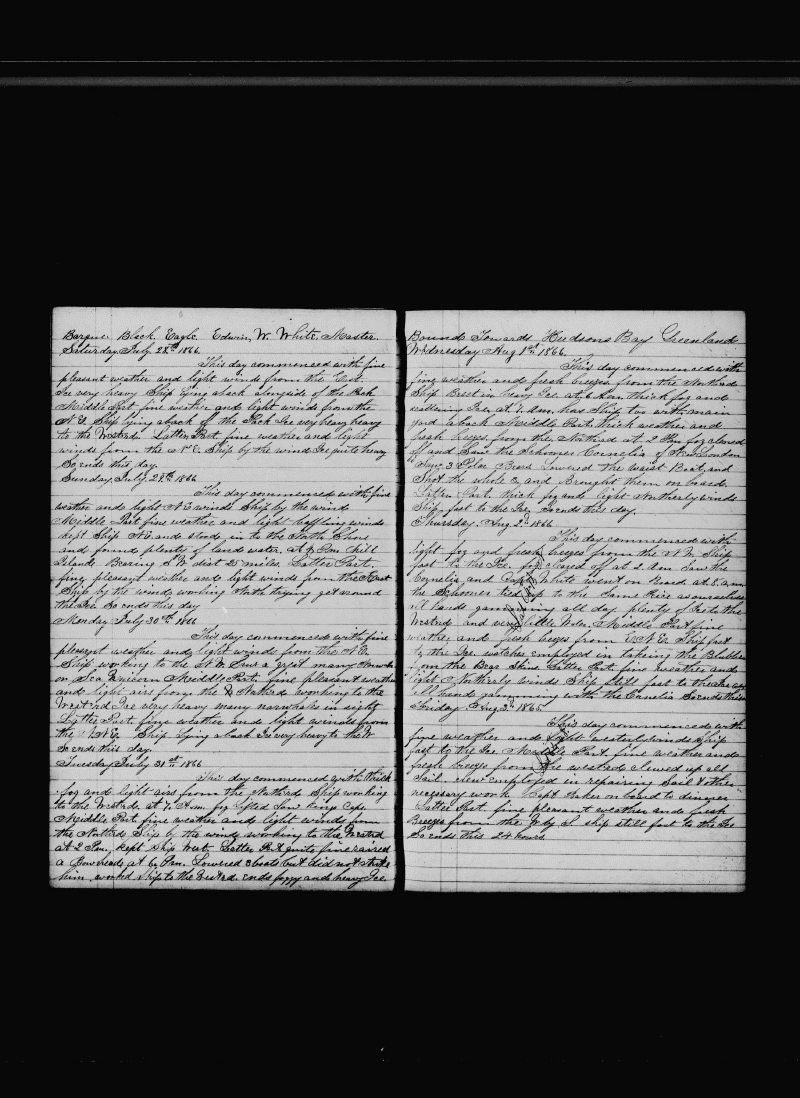 Barque Black Eagle Edwin, W. White, Master
Saturday July 28th 1866
This day commenced with fine
pleasant weather and light winds from the East
Ice very heavy Ship lying aback alongside of the Pack
Middle Part fine weather and light winds from the
N.E. Ship lying aback of the Pack Ice very heavy heavy
to the Westrd. Latter Part fine weather and light
winds from the N.E. Ship by the wind Ice quite heavy
So ends this day.
Sunday, July 29th 1866
This day commenced with fine
weather and light N.E winds Ship by the wind
Middle Part fine weather and light baffling winds
kept Ship N.E and stood in to the North Shore
and found plenty of land water. at 9 Pm Hill
Islands Bearing S W dist 25 miles. Latter Part.
fine pleasant weather and light winds from the East
Ship by the winds working North trying get around
the Ice So ends this day
Monday July 30th 1866
This day commenced with fine
pleasent weather and light winds from the N.E.
Ship working to the N.W. Saw a great many
on Sea Unicorn Middle Part. fine pleasant weather
and light airs from the Natherd working to the
Westrd Ice very heavy many narwhales in sight
Latter Part fine weather and light winds from
the N.N.E. Ship lying aback Ice very heavy to the W
So ends this day.
Tuesday July 31st 1866
This day commenced with thick
fog and light airs from the Natherd Ship working
to the Westrd. at 7, A.m. fog lifted Saw Kings Cape
Middle Part fine weather and light winds from
the Nathrd Ship by the wind working to the Westrd
at 2 Pm. kept Ship West. Latter Part quite fine raised
a Bowheads at 6, Pm. Lowered 3 boats but did not strike
him. worked Ship to the Westrd. ends foggy and heavy Ice
Bound Towards Hudsons Bay Greenland
Wednesday Aug 1st 1866.
This day commenced with
fine weather and fresh breezes from the Nothrd
Ship Beset in heavy Ice at 6 Am. thick fog and
scattering Ice, at 7, Am. has Ship too with main
yard aback Middle Part. thick weather and
fresh breezes from the Nathrad at 2 Pm fog cleared
off and Saw the Schooner Cornelia of New London
Saw 3 Polar Bears Lowered the waist Boat, and
Shot the whole 3, and Brought them on board.
Latter Part. thick fog and light Notherly winds
Ship fast to the Ice, So ends this day.
Thursday. Aug. 2d 1866
This day commenced with
light fog and fresh breezes from the N.W. Ship
fast to the Ice. fog cleared off at 2 Am Saw the
Cornelia and Capt White went on Board at 8. a,m
the Schooner tied up to the Same Piece as ourselves
All hands gamming all day plenty of Ice to the
Westrd and very little Water. Middle Part fine
weather and fresh breezes from E.N.E. Ship fast
to the Ice watches employed in taking the Blubber
from the Bear Skins Latter Part fine weather and
light Notherly winds Ship still fast to the Ice
All hand gamming with the Cornelia So ends this
Friday Aug 3d 1866
This day commenced with
fine weather and light westerly winds Ship
fast to the Ice. Middle Part. fine weather and
fresh breezes from the westrd clewed up all
Sail. crew employed in repairing Sail & other
necessary work Capt Baker on board to dinner
Latter Part. fine pleasant weather and fresh
Breezes from the W by S. ship still fast to the Ice
So ends this 24 hours